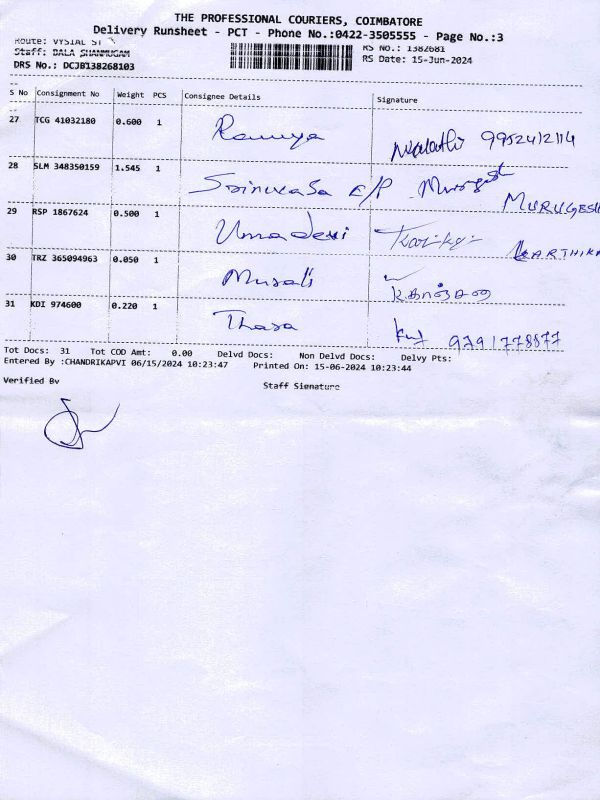 THE PROFESSIONAL COURIERS, COIMBATORE
Delivery Runsheet - PCT - Phone No.:0422-3505555 - Page No.:3
Route: VYSIAL ST
RS NO.: 1382681
Staff: BALA SHANMUGAM
RS Date: 15-Jun-2024
DRS No.: DCJB138268103
S No Consignment No Weight PCS Consignee Details Signature
27 TCG 41032180 0.600 1 Ramya Malathi 9952412114
28 SLM 348350159 1.545 1 Srinivasa E/P Murugesh MURUGESH
29 RSP 1867624 0.500 1 Umadevi Karthika KARTHIKA
30 TRZ 365094963 0.050 1 Murali
31 KDI 974600 0.220 1 Thara 9791778877
Tot Docs: 31 Tot COD Amt: 0.00 Delvd Docs: Non Delvd Docs: Delvy Pts:
Entered By :CHANDRIKAPVI 06/15/2024 10:23:47 Printed On: 15-06-2024 10:23:44
Verified By
Staff Signature